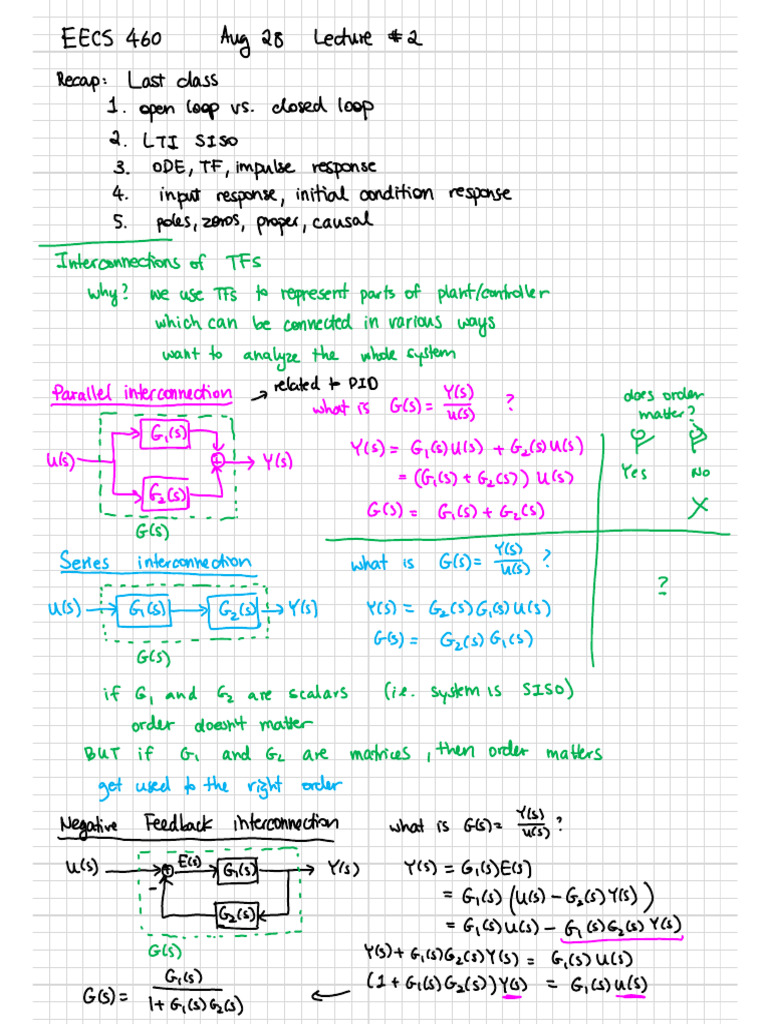 EECS 460 Aug 28 Lecture #2
Recap: Last class
1. open loop vs. closed loop
2. LTI SISO
3. ODE, TF, impulse response
4. input response, initial condition response
5. poles, zeros, proper, causal
Interconnections of TFs
why? we use TFs to represent parts of plant/controller
which can be connected in various ways
want to analyze the whole system
Parallel interconnection → related to PID
what is G(s) = Y(s)/U(s) ?
does order matter?
Yes No
U(s) G₁(s) G₂(s) + Y(s)
G(s)
Y(s) = G₁(s)U(s) + G₂(s)U(s)
= (G₁(s) + G₂(s)) U(s)
G(s) = G₁(s) + G₂(s)
X
Series interconnection
what is G(s) = Y(s)/U(s) ?
?
U(s) → G₁(s) → G₂(s) → Y(s)
G(s)
Y(s) = G₂(s)G₁(s)U(s)
G(s) = G₂(s)G₁(s)
if G₁ and G₂ are scalars (i.e. system is SISO)
order doesn't matter
BUT if G₁ and G₂ are matrices, then order matters
get used to the right order
Negative Feedback interconnection
what is G(s) = Y(s)/U(s) ?
U(s) + − E(s) G₁(s) Y(s)
G₂(s)
G(s)
Y(s) = G₁(s)E(s)
= G₁(s) (U(s) − G₂(s)Y(s))
= G₁(s)U(s) − G₁(s)G₂(s)Y(s)
Y(s) + G₁(s)G₂(s)Y(s) = G₁(s)U(s)
(1 + G₁(s)G₂(s)) Y(s) = G₁(s)U(s)
G(s) = G₁(s)/(1 + G₁(s)G₂(s)) ←